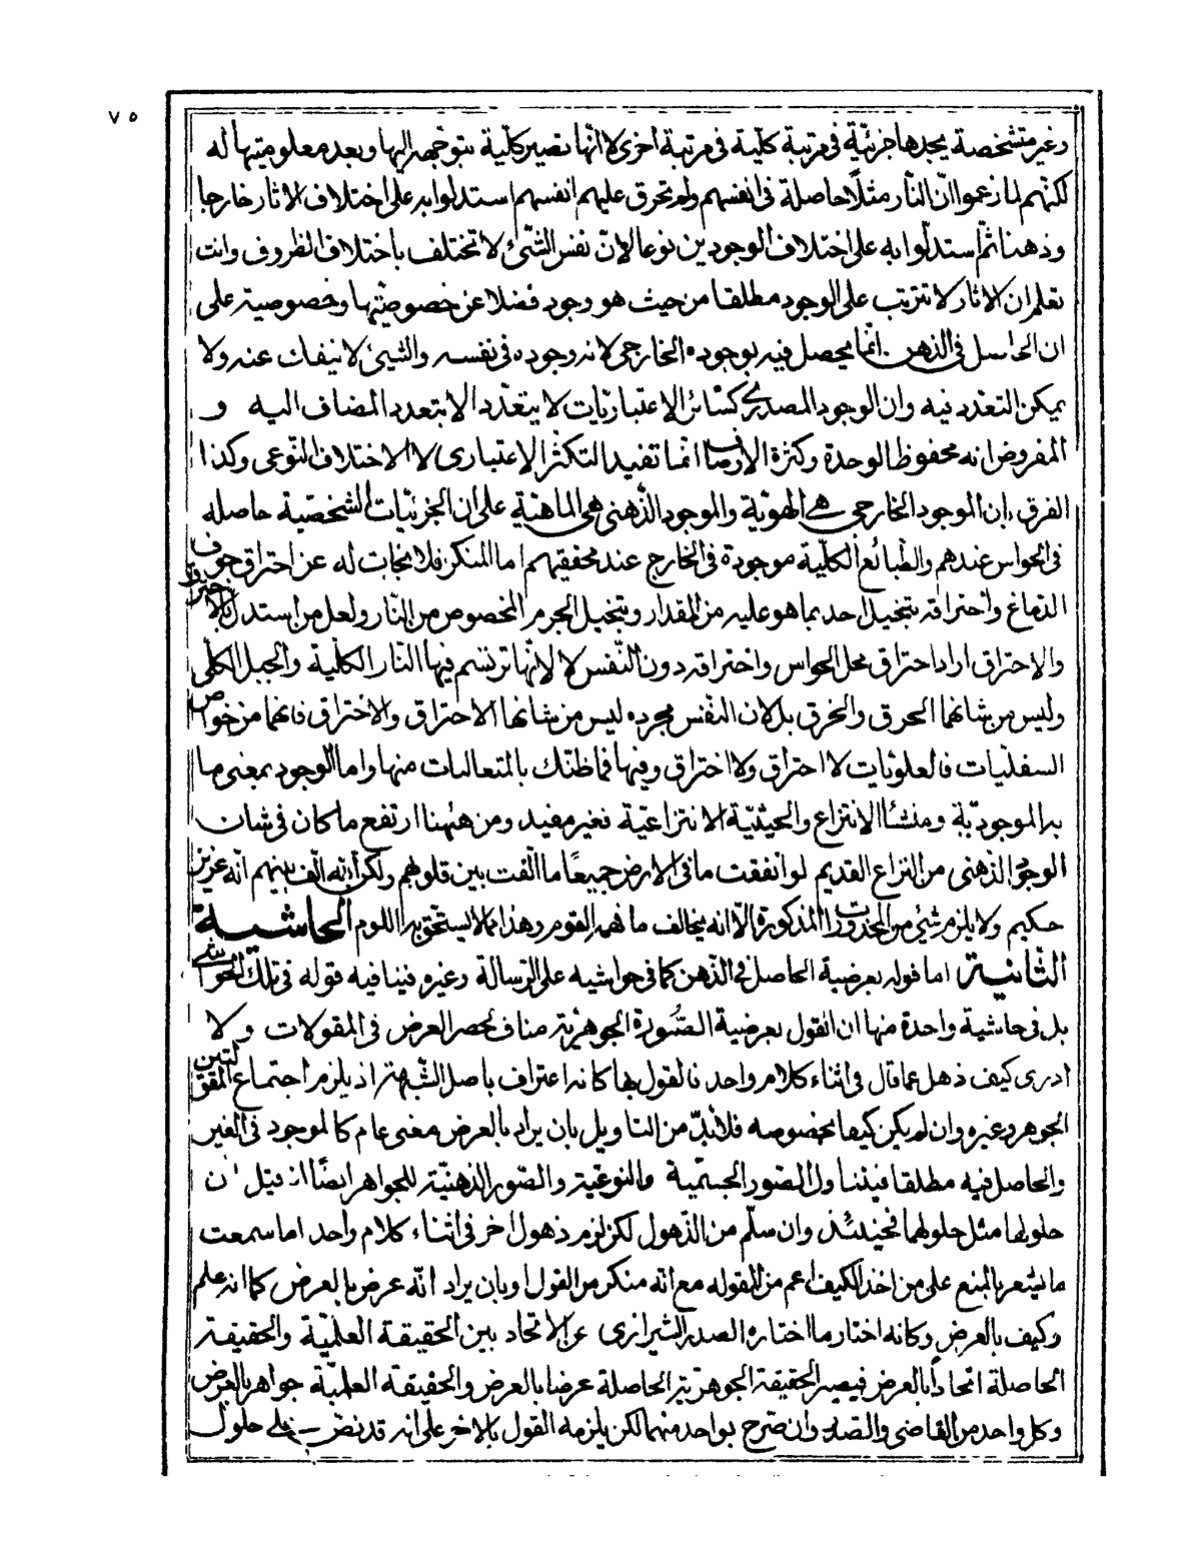 ٧٥
وغير متشخصة يجدها جزئيّة في مرتبة كلّية في مرتبة اخرى لا انّها تصير كلّية بتوجّهه اليها وبعد معلوميّتها له
لكنّهم لما زعموا انّ النّار مثلًا حاصلة في انفسهم ولم تحرق عليهم انفسهم استدلوا به على اختلاف الاثار خارجا
وذهنا ثمّ استدلّوا به على اختلاف الوجودين نوعا لانّ نفس الشّئ لا تختلف باختلاف الظروف وانت
تعلم ان الاثار لا تترتب على الوجود مطلقا من حيث هو وجود فضلا عن خصوصيّتها وخصوصيته على
ان الحاصل في الذهن انّما يحصل فيه بوجوده الخارجي لانه وجوده في نفسه والشيئ لا ينفك عنه ولا
يمكن التعدد فيه وان الوجود المصدري كسائر الاعتباريّات لا يتعدّد الا بتعدد المضاف اليه و
المفروض انه محفوظ الوحدة وكثرة الاوصاف انّما تفيد التكثر الاعتبارى لا الاختلاف النّوعى وكذا
الفرق بان الموجود الخارجي هي الهويّة والموجود الذّهنى هى الماهيّة على ان الجزئيات الشّخصيّة حاصله
في الحواس عندهم والطّبائع الكلّية موجودة في الخارج عند محققيهم اما المنكر فلا نجات له عن احتراق جوف
الدّماغ واختراقه بتخيل احد بما هو عليه من المقدار وبتخيل الجرم المخصوص من النّار ولعل من استدل بالاختراق
والاحتراق اراد احتراق محل الحواس واختراقه دون النّفس لا لانّها ترتسم فيها النّار الكلّية والجبل الكلّى
وليس من شانهما الحرق والخرق بل لان النّفس مجرده ليس من شانها الاحتراق والاختراق فانهما من خواص
السفليات فالعلويّات لا احتراق ولا اختراق وفيها فما ظنّك بالمتعاليات منها واما الوجود بمعنى ما
به الموجوديّة ومنشأ الانتزاع والحيثيّة الانتزاعيّة فغير مفيد ومن هيهنا ارتفع ما كان في شان
الوجود الذّهنى من النزاع القديم لو انفقت ما في الارض جميعًا ما الّفت بين قلوبهم ولكن اللّه الّف بينهم انّه عزيز
حكيم ولا يلزم شيئ من المحذورات المذكورة الّا انه يخالف ما فهمه القوم وهذا مما لا يستحق به اللوم الحاشيـة
الثّانيـة اما قوله بعرضية الحاصل في الذّهن كما في حواشيه على الرّسالة وغيره فينافيه قوله في تلك الحواشي
بل في حاشية واحدة منها ان القول بعرضية الصّورة الجوهريّة مناف لحصر العرض في المقولات ولا
ادرى كيف ذهل عما قال في اثناء كلام واحد فالقول بها كانه اعتراف باصل الشّبهة اذ يلزم اجتماع المقولتين
الجوهر وغيره وان لم يكن كيفا بخصوصه فلابدّ من التاويل بان يراد بالعرض معنى عام كالموجود في الغير
والحاصل فيه مطلقا فيتناول الصّور الجسميّة والنّوعيّة والصّور الذهنيّة للجواهر ايضًا اذ قيل ان
حلولها مثل حلولهما فحينئذ وان سلّم من الذّهول لكن لزم ذهول اخر في اثناء كلام واحد اما سمعت
ما يشعر بالمنع على من اخذ الكيف اعم من المقوله مع انّه منكر من القول او بان يراد انّه عرض بالعرض كما انه علم
وكيف بالعرض وكانه اختار ما اختاره الصدر الشّيرازى عن الاتحاد بين الحقيقة العلميّة والحقيقة
الحاصلة اتحادًا بالعرض فيصير الحقيقة الجوهريّة الحاصلة عرضا بالعرض والحقيقة العلميّة جواهر بالعرض
وكل واحد من القاضى والصّدر وان صرّح بواحد منهما لكن يلزمه القول بالاخر على انه قد نص على حلول